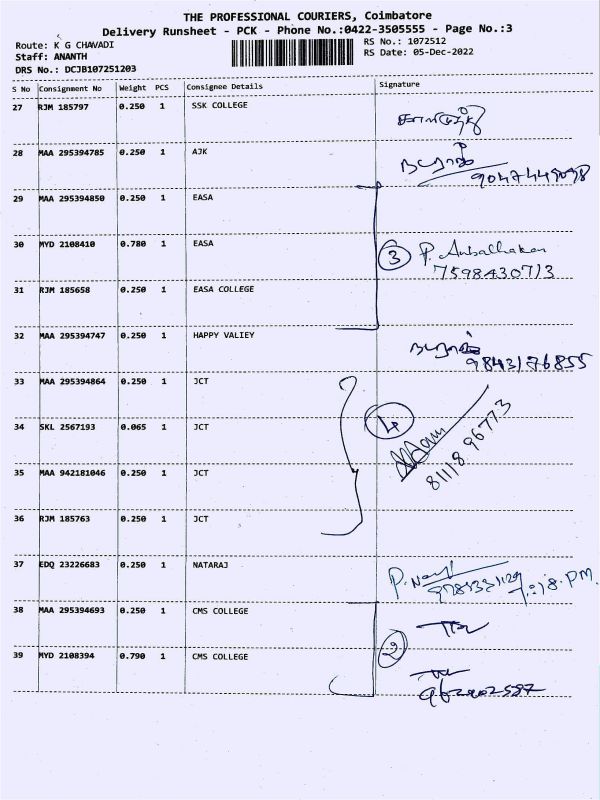 THE PROFESSIONAL COURIERS, Coimbatore
Delivery Runsheet - PCK - Phone No.:0422-3505555 - Page No.:3
Route: K G CHAVADI
RS No.: 1072512
Staff: ANANTH
RS Date: 05-Dec-2022
DRS No.: DCJB107251203
S No Consignment No Weight PCS Consignee Details Signature
27 RJM 185797 0.250 1 SSK COLLEGE
28 MAA 295394785 0.250 1 AJK
9047449098
29 MAA 295394850 0.250 1 EASA
30 MYD 2108410 0.780 1 EASA
3 P. Anbalhakan
7598430713
31 RJM 185658 0.250 1 EASA COLLEGE
32 MAA 295394747 0.250 1 HAPPY VALIEY
9843176855
33 MAA 295394864 0.250 1 JCT
34 SKL 2567193 0.065 1 JCT
4
81118 96773
35 MAA 942181046 0.250 1 JCT
36 RJM 185763 0.250 1 JCT
37 EDQ 23226683 0.250 1 NATARAJ
38 MAA 295394693 0.250 1 CMS COLLEGE
2
39 MYD 2108394 0.790 1 CMS COLLEGE